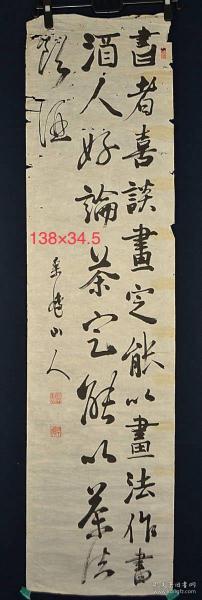 書者喜談畫定能以畫法作書
酒人好論茶定能以茶法
飲酒
山人
138×34.5